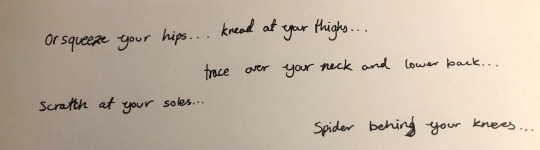 Or squeeze your hips... knead at your thighs...
trace over your neck and lower back...
Scratch at your soles...
Spider behind your knees...